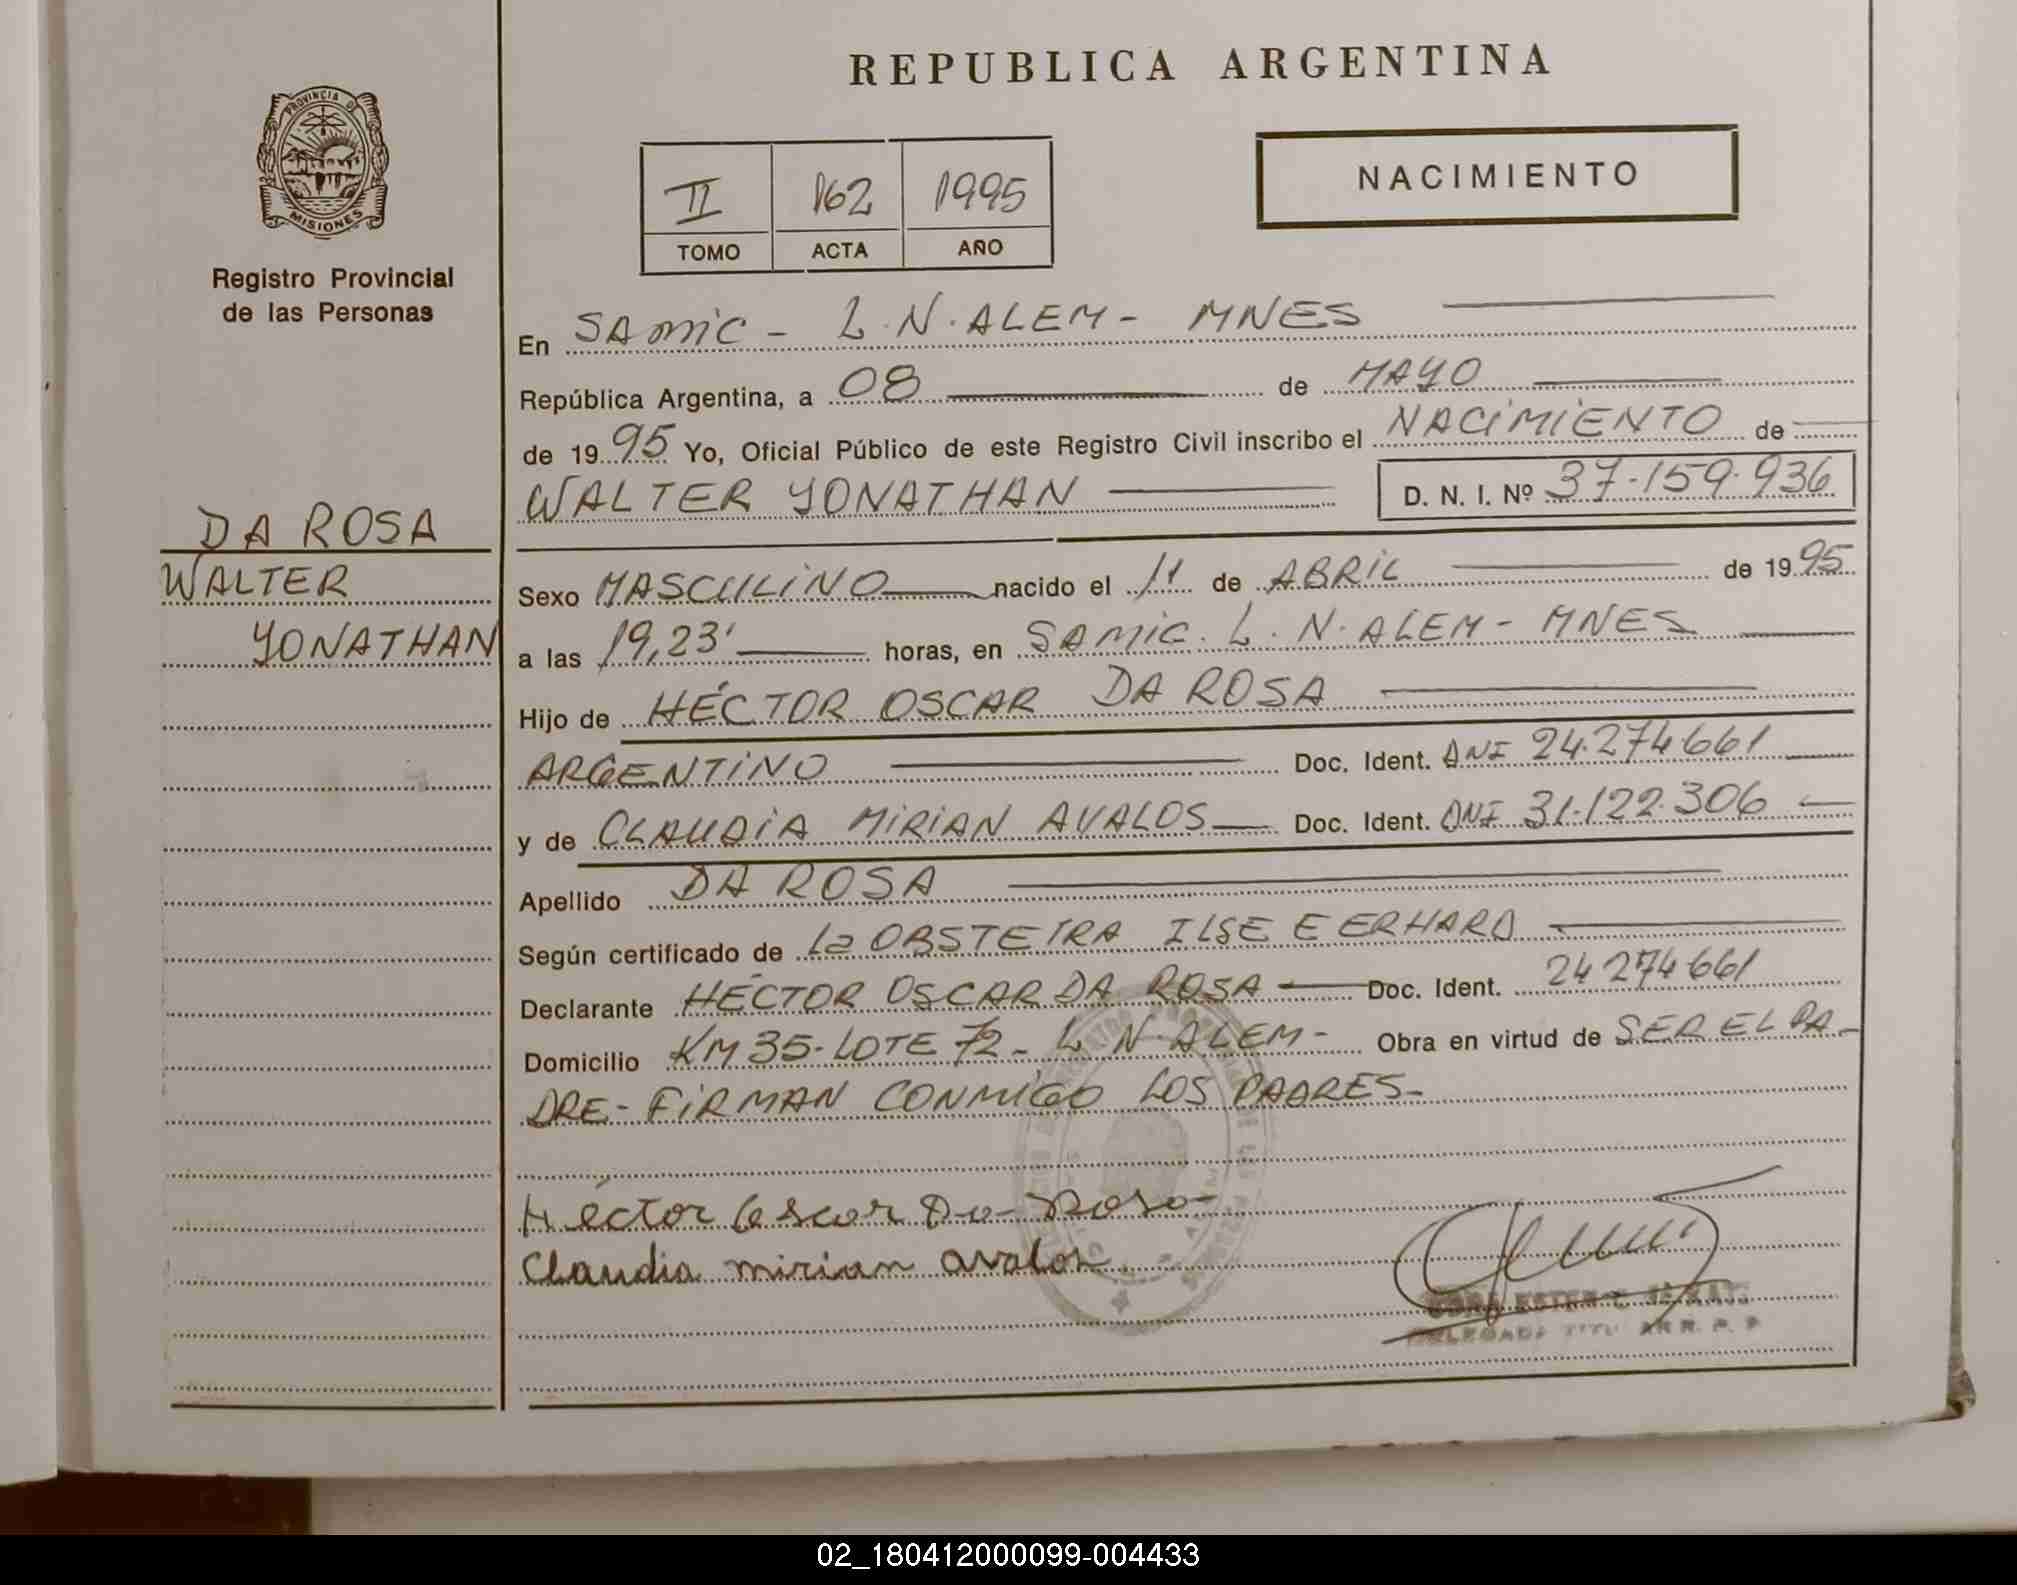 REPUBLICA ARGENTINA
PROVINCIA DE
MISIONES
Registro Provincial
de las Personas
II 162 1995
TOMO ACTA AÑO
NACIMIENTO
En SAMIC - L.N.ALEM - MNES
República Argentina, a 08 de MAYO
de 1995 Yo, Oficial Público de este Registro Civil inscribo el NACIMIENTO de
WALTER YONATHAN D. N. I. Nº 37.159.936
DA ROSA
WALTER
YONATHAN
Sexo MASCULINO nacido el 11 de ABRIL de 1995
a las 19,23' horas, en SAMIC. L.N.ALEM - MNES
Hijo de HÉCTOR OSCAR DA ROSA
ARGENTINO Doc. Ident. DNI 24.274661
y de CLAUDIA MIRIAN AVALOS Doc. Ident. DNI 31.122.306
Apellido DA ROSA
Según certificado de la OBSTETRA ILSE E ERHARD
Declarante HÉCTOR OSCAR DA ROSA Doc. Ident. 24274661
Domicilio KM 35 - LOTE 72 - L N ALEM - Obra en virtud de SER EL PA-
DRE - FIRMAN CONMIGO LOS PADRES -
Héctor Oscar Da Rosa
Claudia mirian avalos
02_180412000099-004433